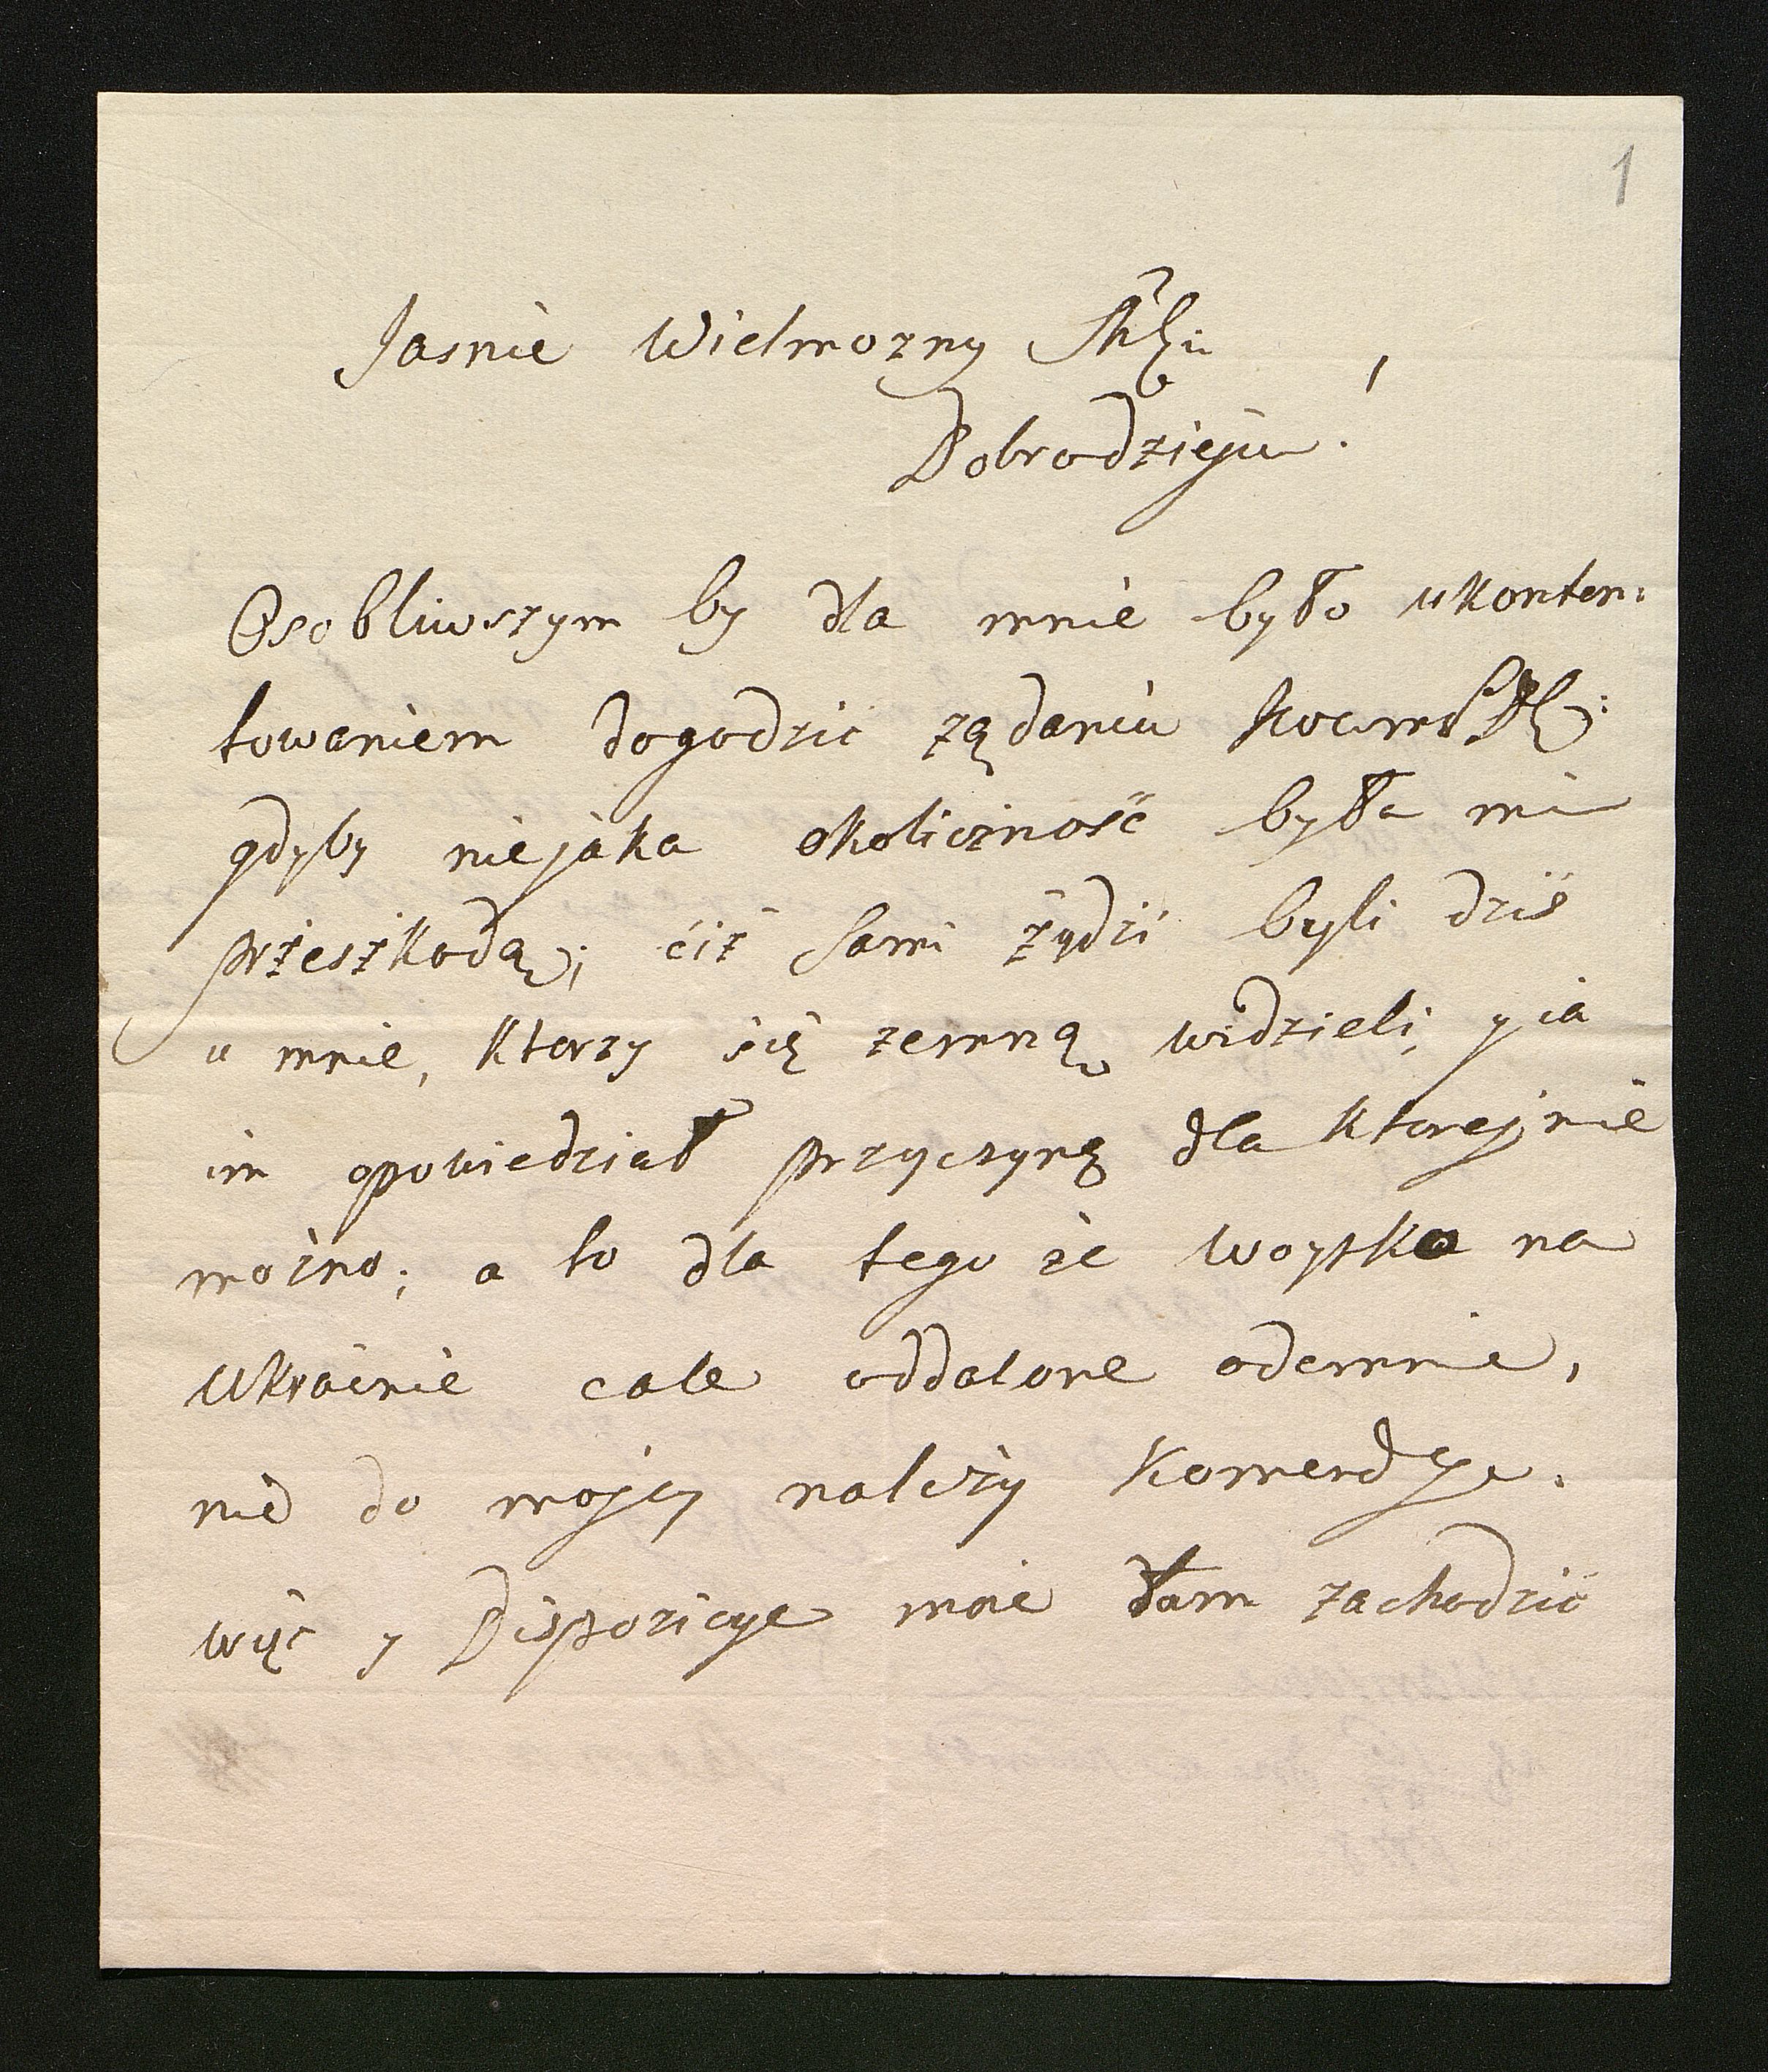 1
Jasnie Wielmozny
Dobrodzieju!
Osobliwszym by dla mnie było ukonten:
towaniem dogodzic ządaniu
gdyby niejaka okoliczność była mi
przeszkodą; ciż sami żydzi byli dziś
u mnie, ktorzy się zemną widzieli, y ia
im opowiedział przyczynę dla ktorej nie
można; a to dla tego że woysko na
Ukrainie cale oddalone odemnie,
nie do mojey należy Komendy.
więc y Dispozicye moie tam zachodzić